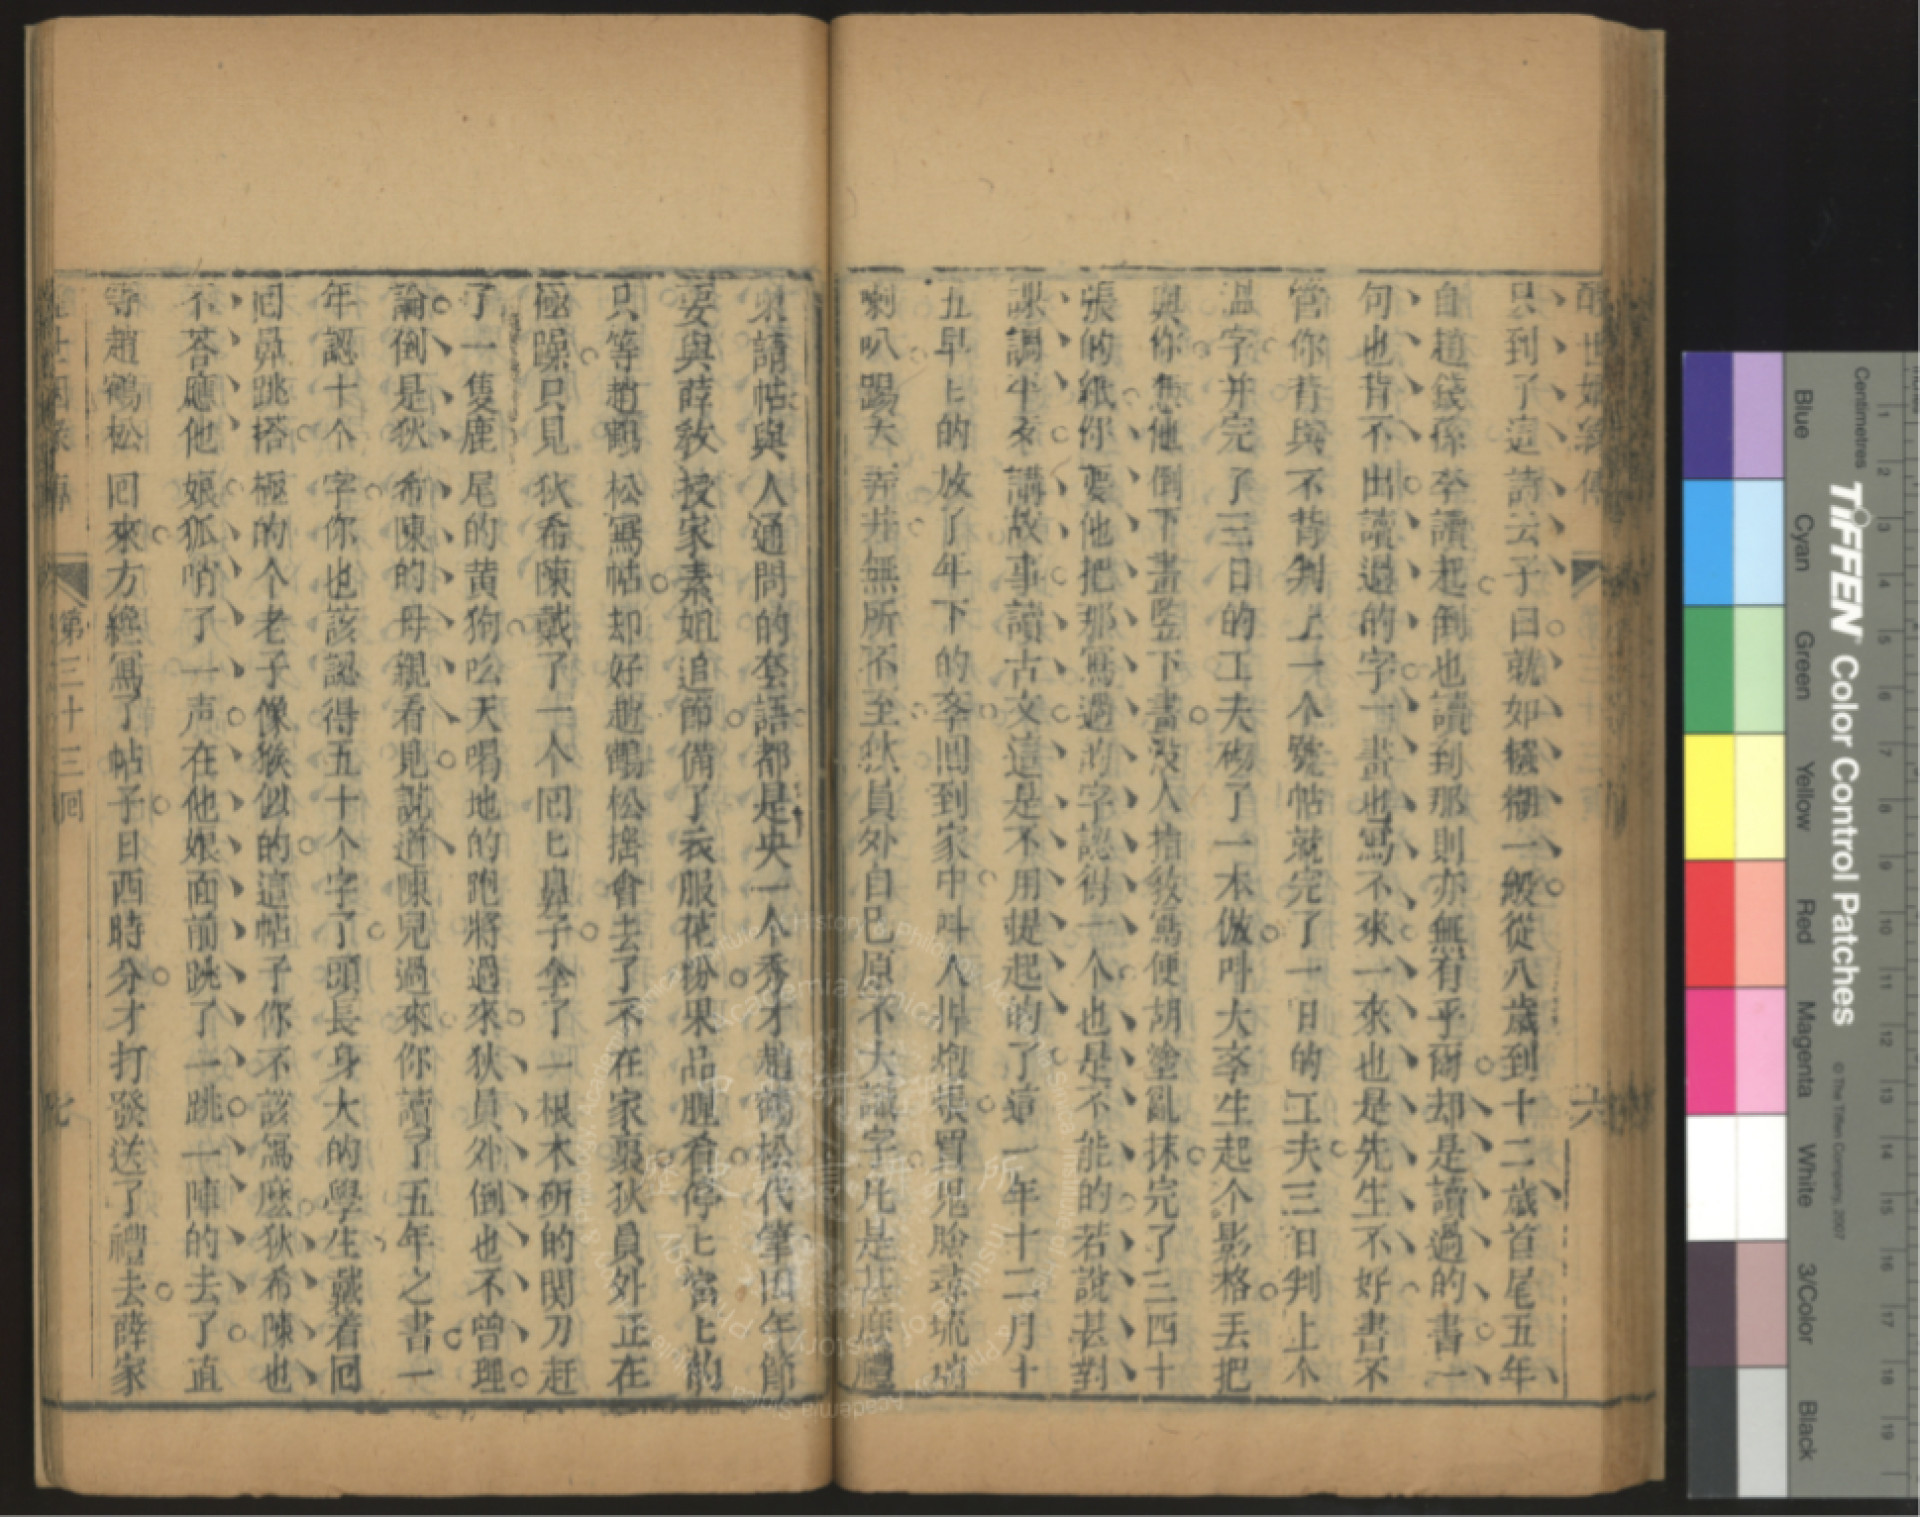 醒世姻緣傳
六
只到了這詩云子曰就如糨糊一般從八歲到十二歲首尾五年
自趙錢孫李讀起倒也讀到那則亦無有乎爾却是讀過的書一
句也背不出讀過的字一畫也寫不來一來也是先生不好書不
管你背與不背判上一个號帖就完了一日的工夫三日判上个
溫字并完了三日的工夫砌了一本倣叫大李生起个影格丟把
與你憑他倒下畫竪下畫沒人指敎寫便胡塗亂抹完了三四十
張的紙你要他把那寫過的字認得一个也是不能的若說甚對
課調平仄講故事讀古文這是不用提起的了這一年十二月十
五早上的放了年下的李回到家中叫人捍炮張買鬼臉尋琉璃
喇叭踢天弄井無所不至狄員外自已原不大識字凡是甚麼禮
柬請帖與人通問的套語都是央一个秀才趙鶴松代筆旧年節
要與薛敎授家素姐追節備了衣服花粉果品腥肴停匕當上的
只等趙鶴松寫帖却好趙鶴松搭會去了不在家裏狄員外正在
極躁只見狄希陳戴了一个囘匕鼻子拿了一根木斫的関刀赶
了一隻鹿尾的黄狗吆天喝地的跑將過來狄員外倒也不曾理
論倒是狄希陳的母親看見說道陳兒過來你讀了五年之書一
年認十个字你也該認得五十个字了頭長身大的學生戴着囘
囘鼻跳搭極的个老子像猴似的這帖子你不該寫麽狄希陳也
不答應他娘狐哨了一声在他娘面前跳了一跳一陣的去了直
等趙鶴松囘來方纔寫了帖子日西時分才打發送了禮去薛家
第三十三囘